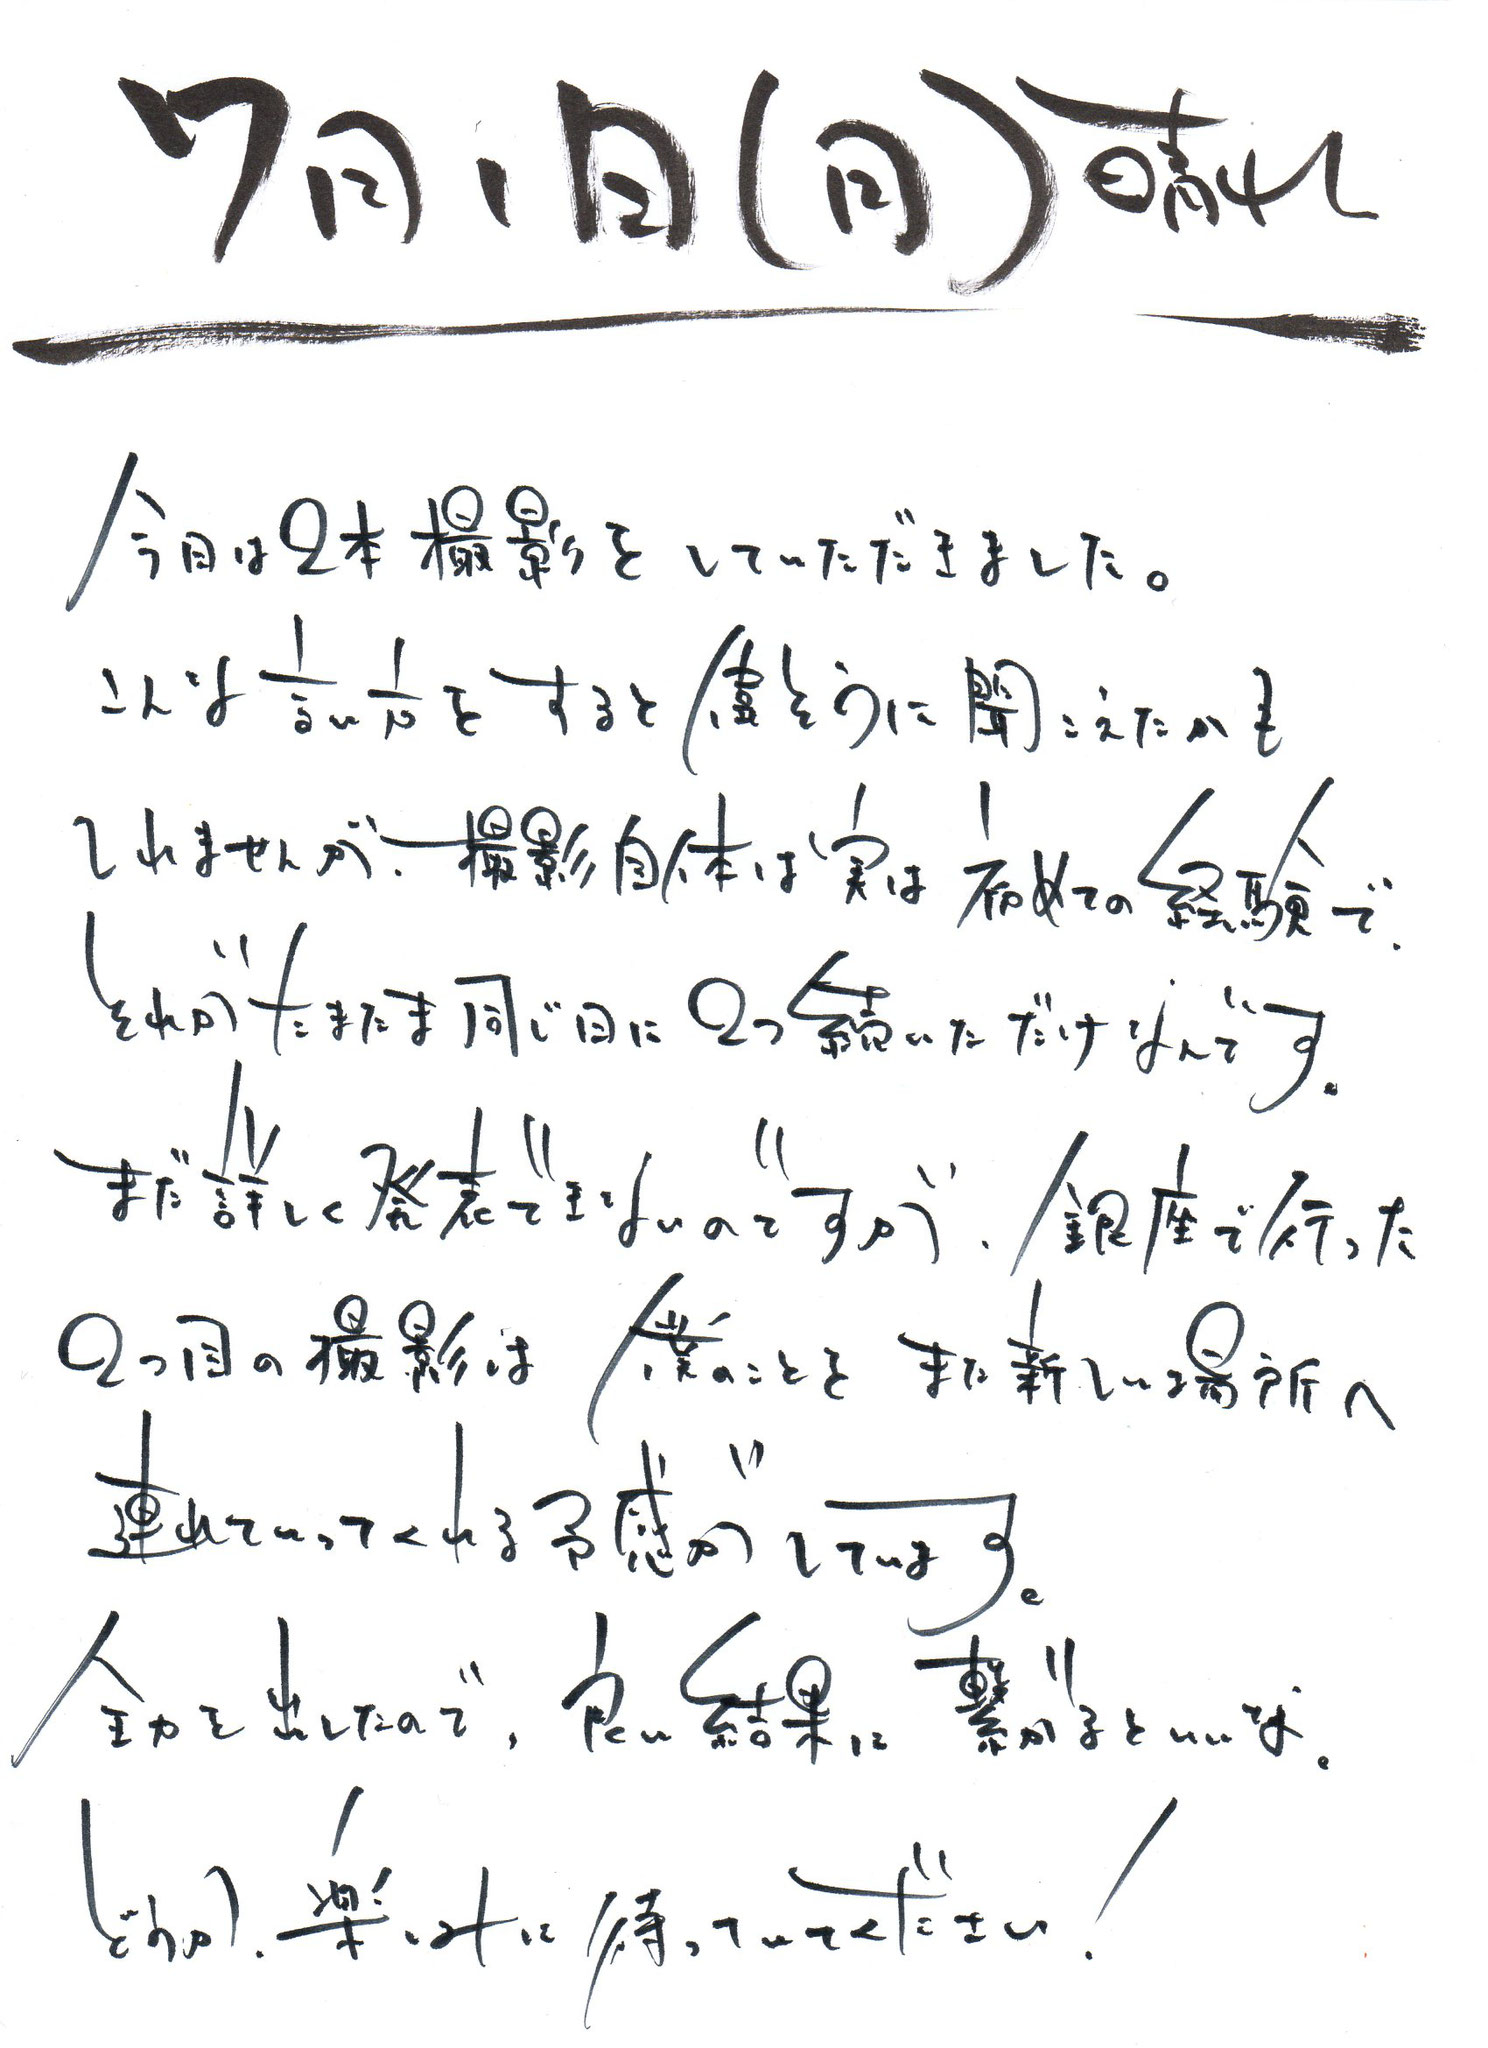 7月1日(月)晴れ
今日は2本撮影をしていただきました。
こんな言い方をすると嘘そうに聞こえたかも
しれませんが、撮影自体は実は初めての経験で、
それがたまたま同じ日に2つ続いただけなんです。
まだ詳しく発表できないのですが、銀座で行った
2つ目の撮影は僕のことをまた新しい場所へ
連れていってくれる予感がしています。
全力を出したので、良い結果に繋がるといいな。
どうか、楽しみに待っていてください!